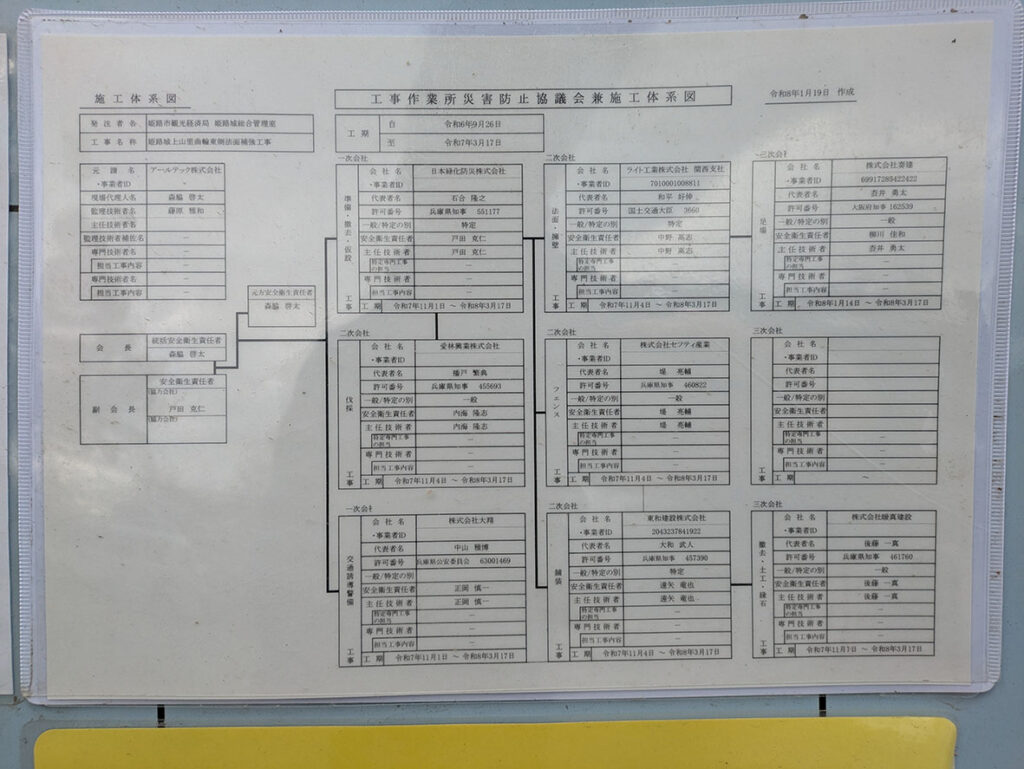 施工体系図
工事作業所災害防止協議会兼施工体系図
令和8年1月19日 作成
発注者名 姫路市観光経済局 姫路城総合管理室
工事名称 姫路城上山里曲輪東側法面補強工事
工期 自 令和6年9月26日
至 令和7年3月17日
元請名 アールテック株式会社
・事業者ID －
現場代理人名 森脇 啓太
監理技術者名 藤原 雅和
主任技術者名
監理技術者補佐名 －
専門技術者名 －
担当工事内容 －
専門技術者名 －
担当工事内容 －
元方安全衛生責任者
森脇 啓太
会長 統括安全衛生責任者
森脇 啓太
副会長 安全衛生責任者
(協力会社)
戸田 克仁
(協力会社)
一次会社
準備・撤去・仮設 工事
会社名 日本緑化防災株式会社
・事業者ID
代表者名 石合 隆之
許可番号 兵庫県知事 551177
一般/特定の別 特定
安全衛生責任者 戸田 克仁
主任技術者 戸田 克仁
特定専門工事の担当 －
専門技術者 －
担当工事内容 －
工期 令和7年11月1日 ～ 令和8年3月17日
二次会社
伐採 工事
会社名 愛林興業株式会社
・事業者ID
代表者名 播戸 繁典
許可番号 兵庫県知事 455693
一般/特定の別 一般
安全衛生責任者 内海 隆志
主任技術者 内海 隆志
特定専門工事の担当 －
専門技術者 －
担当工事内容 －
工期 令和7年11月4日 ～ 令和8年3月17日
一次会社
交通誘導警備 工事
会社名 株式会社大翔
・事業者ID
代表者名 中山 雅博
許可番号 兵庫県公安委員会 63001469
一般/特定の別
安全衛生責任者 正岡 慎一
主任技術者 正岡 慎一
特定専門工事の担当 －
専門技術者 －
担当工事内容 －
工期 令和7年11月1日 ～ 令和8年3月17日
二次会社
法面・擁壁 工事
会社名 ライト工業株式会社 関西支社
・事業者ID 7010001008811
代表者名 和平 好伸
許可番号 国土交通大臣 3660
一般/特定の別 特定
安全衛生責任者 中野 高志
主任技術者 中野 高志
特定専門工事の担当 －
専門技術者 －
担当工事内容 －
工期 令和7年11月4日 ～ 令和8年3月17日
二次会社
フェンス 工事
会社名 株式会社セフティ産業
・事業者ID
代表者名 堤 亮輔
許可番号 兵庫県知事 460822
一般/特定の別 一般
安全衛生責任者 堤 亮輔
主任技術者 堤 亮輔
特定専門工事の担当 －
専門技術者 －
担当工事内容 －
工期 令和7年11月4日 ～ 令和8年3月17日
二次会社
舗装 工事
会社名 東和建設株式会社
・事業者ID 2043237841922
代表者名 大和 武人
許可番号 兵庫県知事 457390
一般/特定の別 特定
安全衛生責任者 遠矢 竜也
主任技術者 遠矢 竜也
特定専門工事の担当 －
専門技術者 －
担当工事内容 －
工期 令和7年11月4日 ～ 令和8年3月17日
三次会社
足場 工事
会社名 株式会社奏建
・事業者ID 69917285422422
代表者名 壺井 勇太
許可番号 大阪府知事 162539
一般/特定の別 一般
安全衛生責任者 柳川 佳和
主任技術者 壺井 勇太
特定専門工事の担当 －
専門技術者 －
担当工事内容 －
工期 令和8年1月14日 ～ 令和8年3月17日
三次会社
工事
会社名
・事業者ID
代表者名
許可番号
一般/特定の別
安全衛生責任者
主任技術者
特定専門工事の担当 －
専門技術者 －
担当工事内容 －
工期 ～
三次会社
撤去・土工・縁石 工事
会社名 株式会社暖真建設
・事業者ID
代表者名 後藤 一真
許可番号 兵庫県知事 461760
一般/特定の別 一般
安全衛生責任者 後藤 一真
主任技術者 後藤 一真
特定専門工事の担当 －
専門技術者 －
担当工事内容 －
工期 令和7年11月1日 ～ 令和8年3月17日